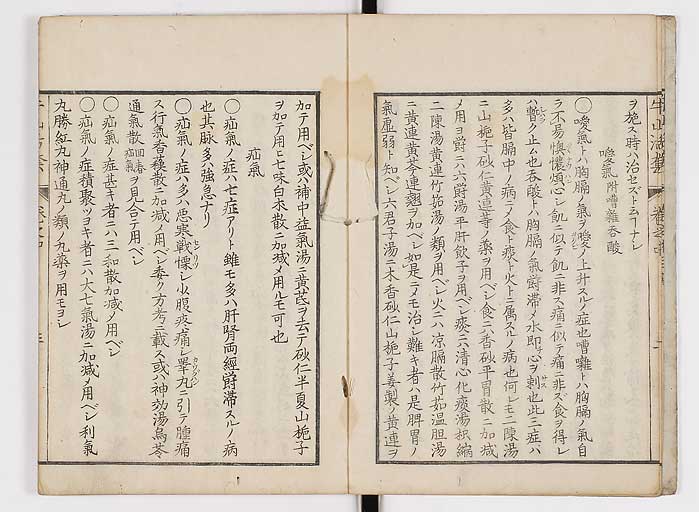 ヲ施ス時ハ治セズト云フナシ
噯氣 附嘈雜呑酸
〇噯氣トハ胸膈ノ氣ヲ噯ク上升スル症也嘈囃トハ胸膈ノ氣自
ラ不易懊憹煩心レ飢ニ似テ飢ニ非ズ痛ニ似テ痛ニ非ズ食ヲ得レ
ハ暫ク止ム也呑酸トハ胸膈ノ氣欝滯メ水即心ヲ刺也此三症ハ
多ハ皆膈中ノ病ニメ食ト痰ト火トニ属スルノ病也何レモ二陳湯
ニ山梔子砂仁黄連等ノ藥ヲ用ベレ食ニハ香砂平胃散ニ加減
メ用ヨ欝ニハ六欝湯平肝飲子ヲ用ベレ痰ニハ清心化痰湯枳縮
二陳湯黄連竹茹湯ノ類ヲ用ベレ火ニハ凉膈散竹茹温胆湯
ニ黄連黄芩連翹ヲ加ベレ如是ニテモ治レ難キ者ハ是脾胃ノ
氣虚弱ト知ベレ六君子湯ニ木香砂仁山梔子姜製ノ黄連ヲ
加テ用ベレ或ハ補中益氣湯ニ黄芪ヲ去テ砂仁半夏山梔子
ヲ加テ用ヒ七味白朮散ニ加减メ用ルモ可也
疝氣
〇疝氣ノ症ハ七症アリト雖モ多ハ肝腎両經欝滯スルノ病
也其脉多ハ強急ナリ
〇疝氣ノ症ハ多ハ悪寒戰慄レ小腹疼痛レ睾丸ニ引テ腫痛
ス行氣香蘓散ニ加减メ用ベレ委ク方考ニ載ス或ハ神効湯烏苓
通氣散回春疝氣ヲ見合テ用ベレ
〇疝氣ノ症甚キ者ニハ三和散加减メ用ベレ
〇疝氣ノ症積聚ツヨキ者ニハ大七氣湯ニ加减メ用ベレ利氣
丸勝紅丸神通丸ノ類ノ丸藥ヲ用モヨレ